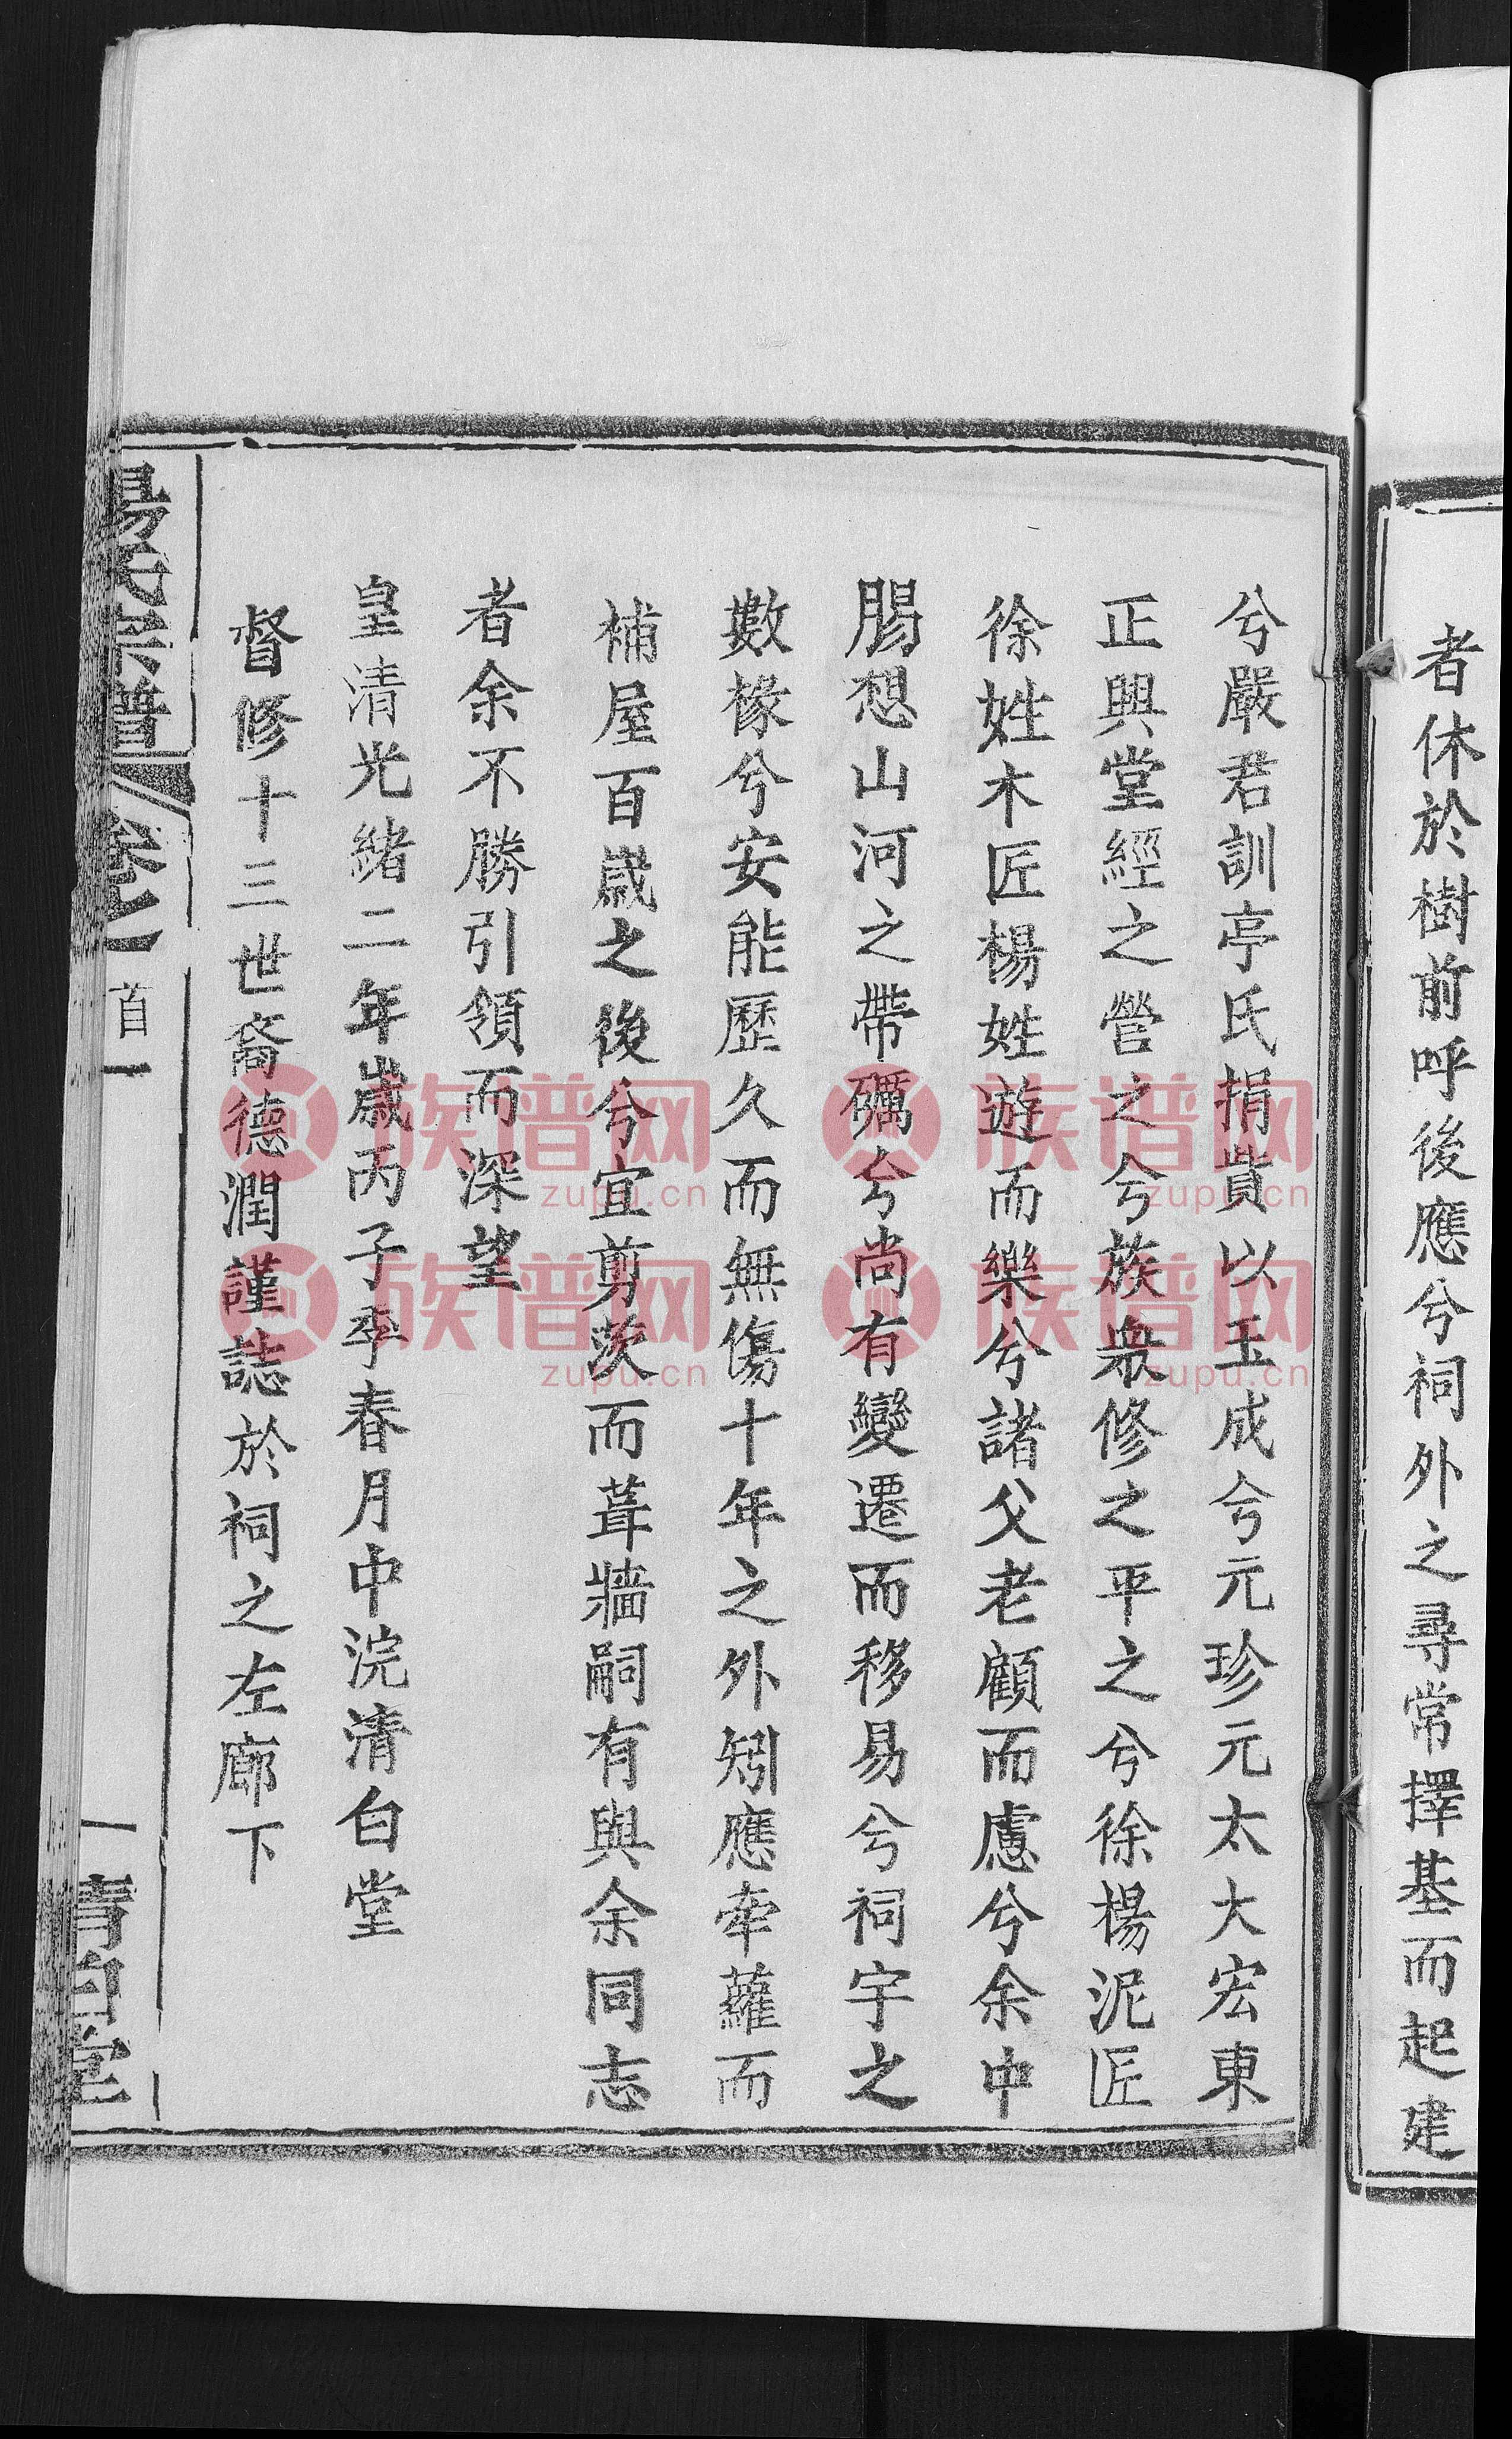 者休於樹前呼後應兮祠外之尋常擇基而起建
兮嚴君訓亭氏捐貲以玉成兮元珍元太大宏東
正興堂經之營之兮族衆修之平之兮徐楊泥匠
徐姓木匠楊姓遊而樂兮諸父老顧而慮兮余中
腸想山河之帶礪兮尚有變遷而移易兮祠宇之
數椽兮安能歷久而無傷十年之外矧應牽蘿而
補屋百歲之後兮宜剪茨而葺牆嗣有與余同志
者余不勝引領而深望
皇清光緒二年歲丙子季春月中浣清白堂
督修十三世裔德潤謹誌於祠之左廊下
楊氏宗譜
卷之一
首一
清白堂
族谱网
zupu.cn
族谱网
zupu.cn
族谱网
zupu.cn
族谱网
zupu.cn